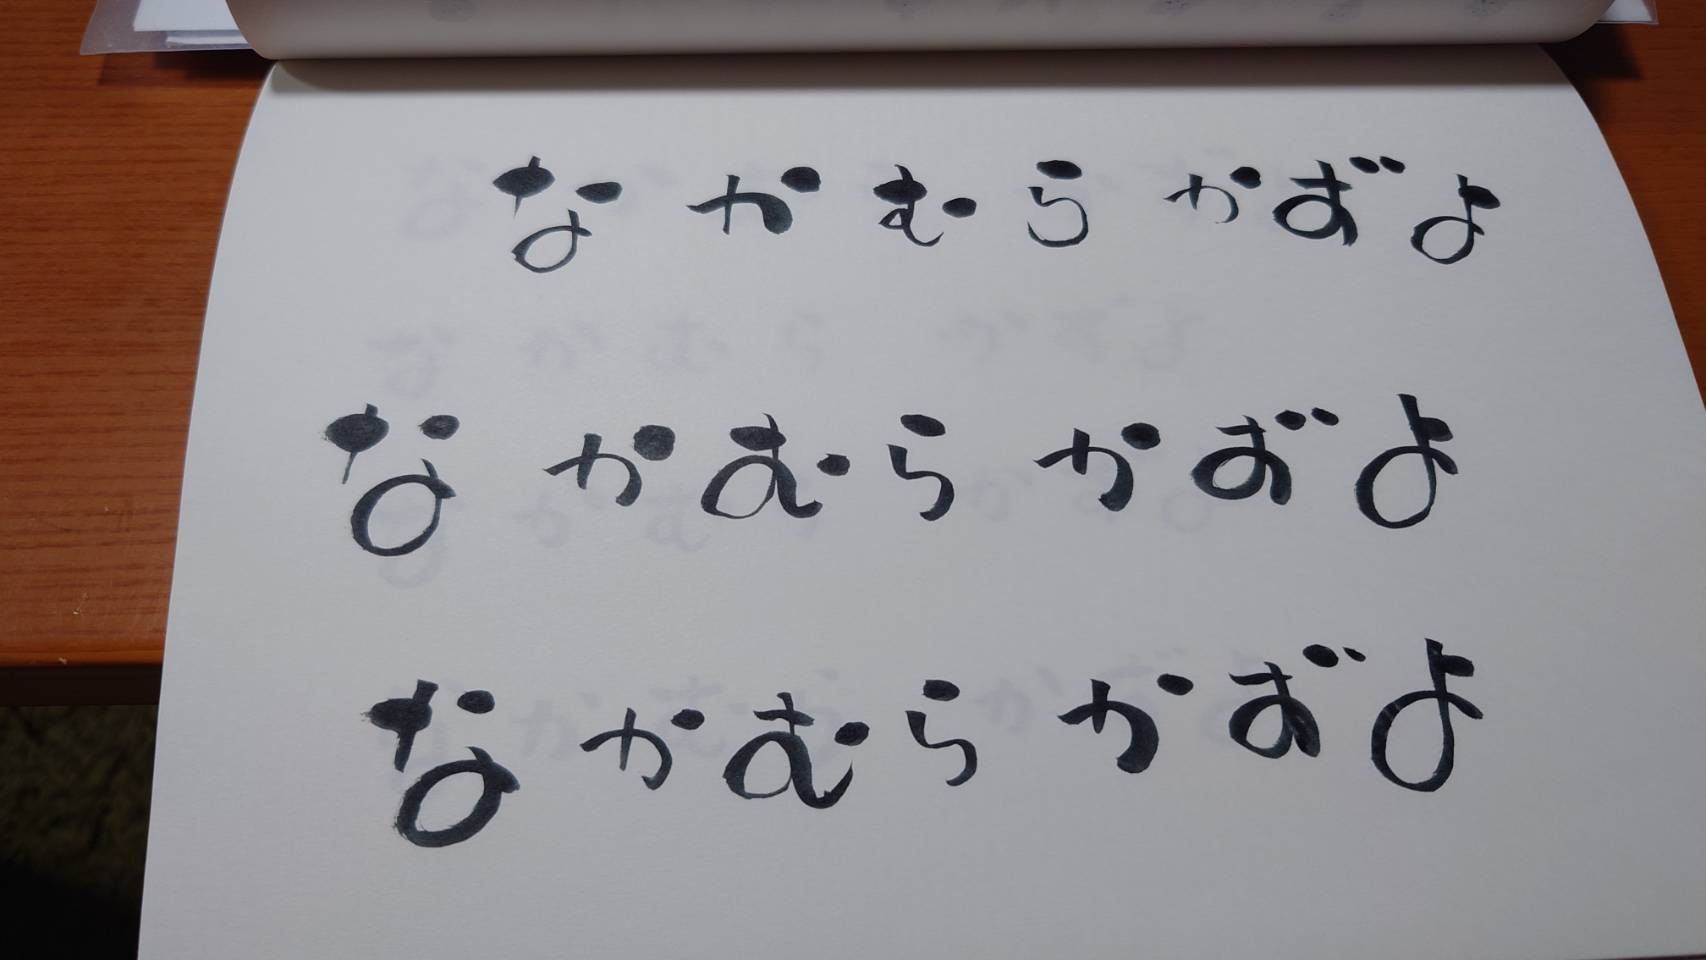 なかむら かずよ
なかむら かずよ
なかむら かずよ